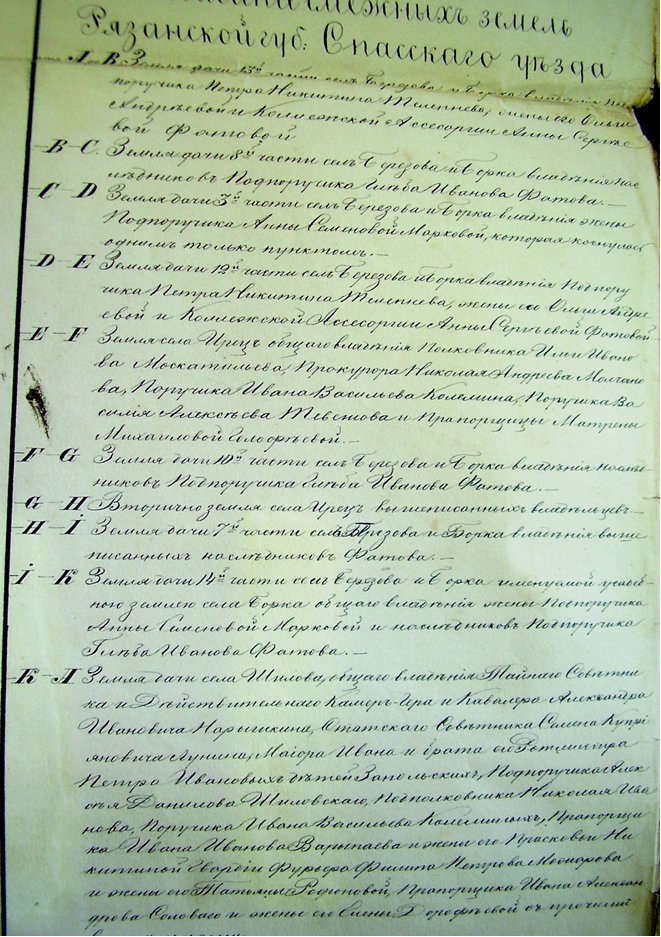 смежныхъ земель
Рязанской губ: Спасскаго уѣзда
А В Земля дачи 13й части селъ Березова и Борка владѣнія
поручика Петра Никитина Телепнева, жены его Ольги
Андрѣевой и Колежской Ассесоргии Анны Сергѣе
вой Фатовой
В – С. Земля дачи 8й части селъ Березова и Борка владѣнія нас
лѣдниковъ Подпоручика Глѣба Иванова Фатова. —
С D Земля дачи 3й части селъ Березова и Борка владѣнія жены
Подпоручика Анны Семеновой Марковой, которая коснулась
однимъ только пунктомъ. —
D – E Земля дачи 12й части селъ Березова и Борка владѣнія Подпору
чика Петра Никитина Телепнева, жены его Ольги Андре
евой и Колежской Ассесоргии Анны Сергѣевой Фатовой
E – F Земля села Ирецъ общаго владѣнія Полковника Ильи Ивано
ва Москатильева, Прокурора Николая Андреева Молчано
ва, Поручика Ивана Васильева Колемина, Поручика Ва
силія Алексѣева и Прапорщицы Матрены
Михаиловой —
F – G Земля дачи 10й части селъ Березова и Борка владѣнія наслѣд
никовъ Подпоручика Глѣба Иванова Фатова. —
G – H Вторично земля села Ирецъ вышеписанныхъ владѣльцевъ—
H – I Земля дачи 7й части селъ Березова и Борка владѣнія выше
писанныхъ наслѣдниковъ Фатова. —
I – K Земля дачи 14й части селъ Березова и Борка именуемой усадьб
ною землею села Борка общаго владѣнія жены Подпоручика
Анны Семеновой Марковой и наслѣдниковъ Подпоручика
Глѣба Иванова Фатова. —
K – Л Земля дачи села Шилова, общаго владѣнія Тайнаго Совѣтни
ка и Дѣйствительнаго Камергера и Кавалера Александра
Ивановича Нарышкина, Статскаго Совѣтника Семена Купрі
яновича Лунина, Маіора Ивана и брата его Ротмистра
Петра Ивановыхъ дѣтей Запольскихъ, Подпоручика Алек
сѣя Данилова Шиловскаго, Подполковника Николая Ива
нова, Поручика Ивана Васильева Колеминыхъ, Прапорщи
ка Ивана Иванова Варыпаева и жены его Прасковьи Ни
китиной Гвардіи Фурьера Филипа Петрова
и жены его Татьяны Родіоновой, Прапорщика Ивана Алексан
дрова Соловаго и жены его Елены Дорофѣевой съ прочими